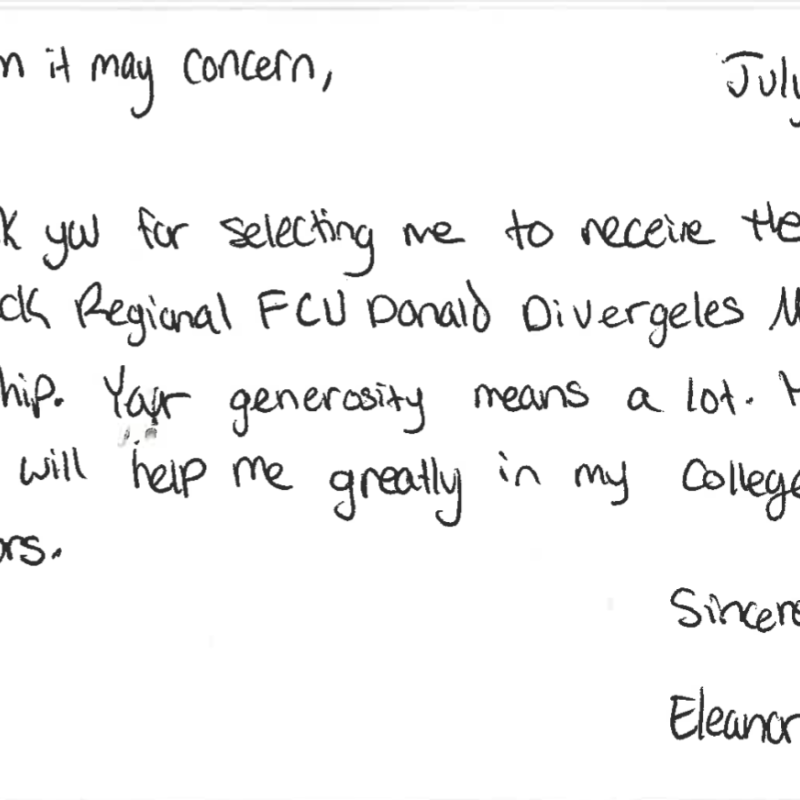 n it may concern,
July
k you for selecting me to receive the
ck Regional FCU Donald Divergeles M
hip. Your generosity means a lot.
will help me greatly in my college
ors.
Sincere
Eleanor